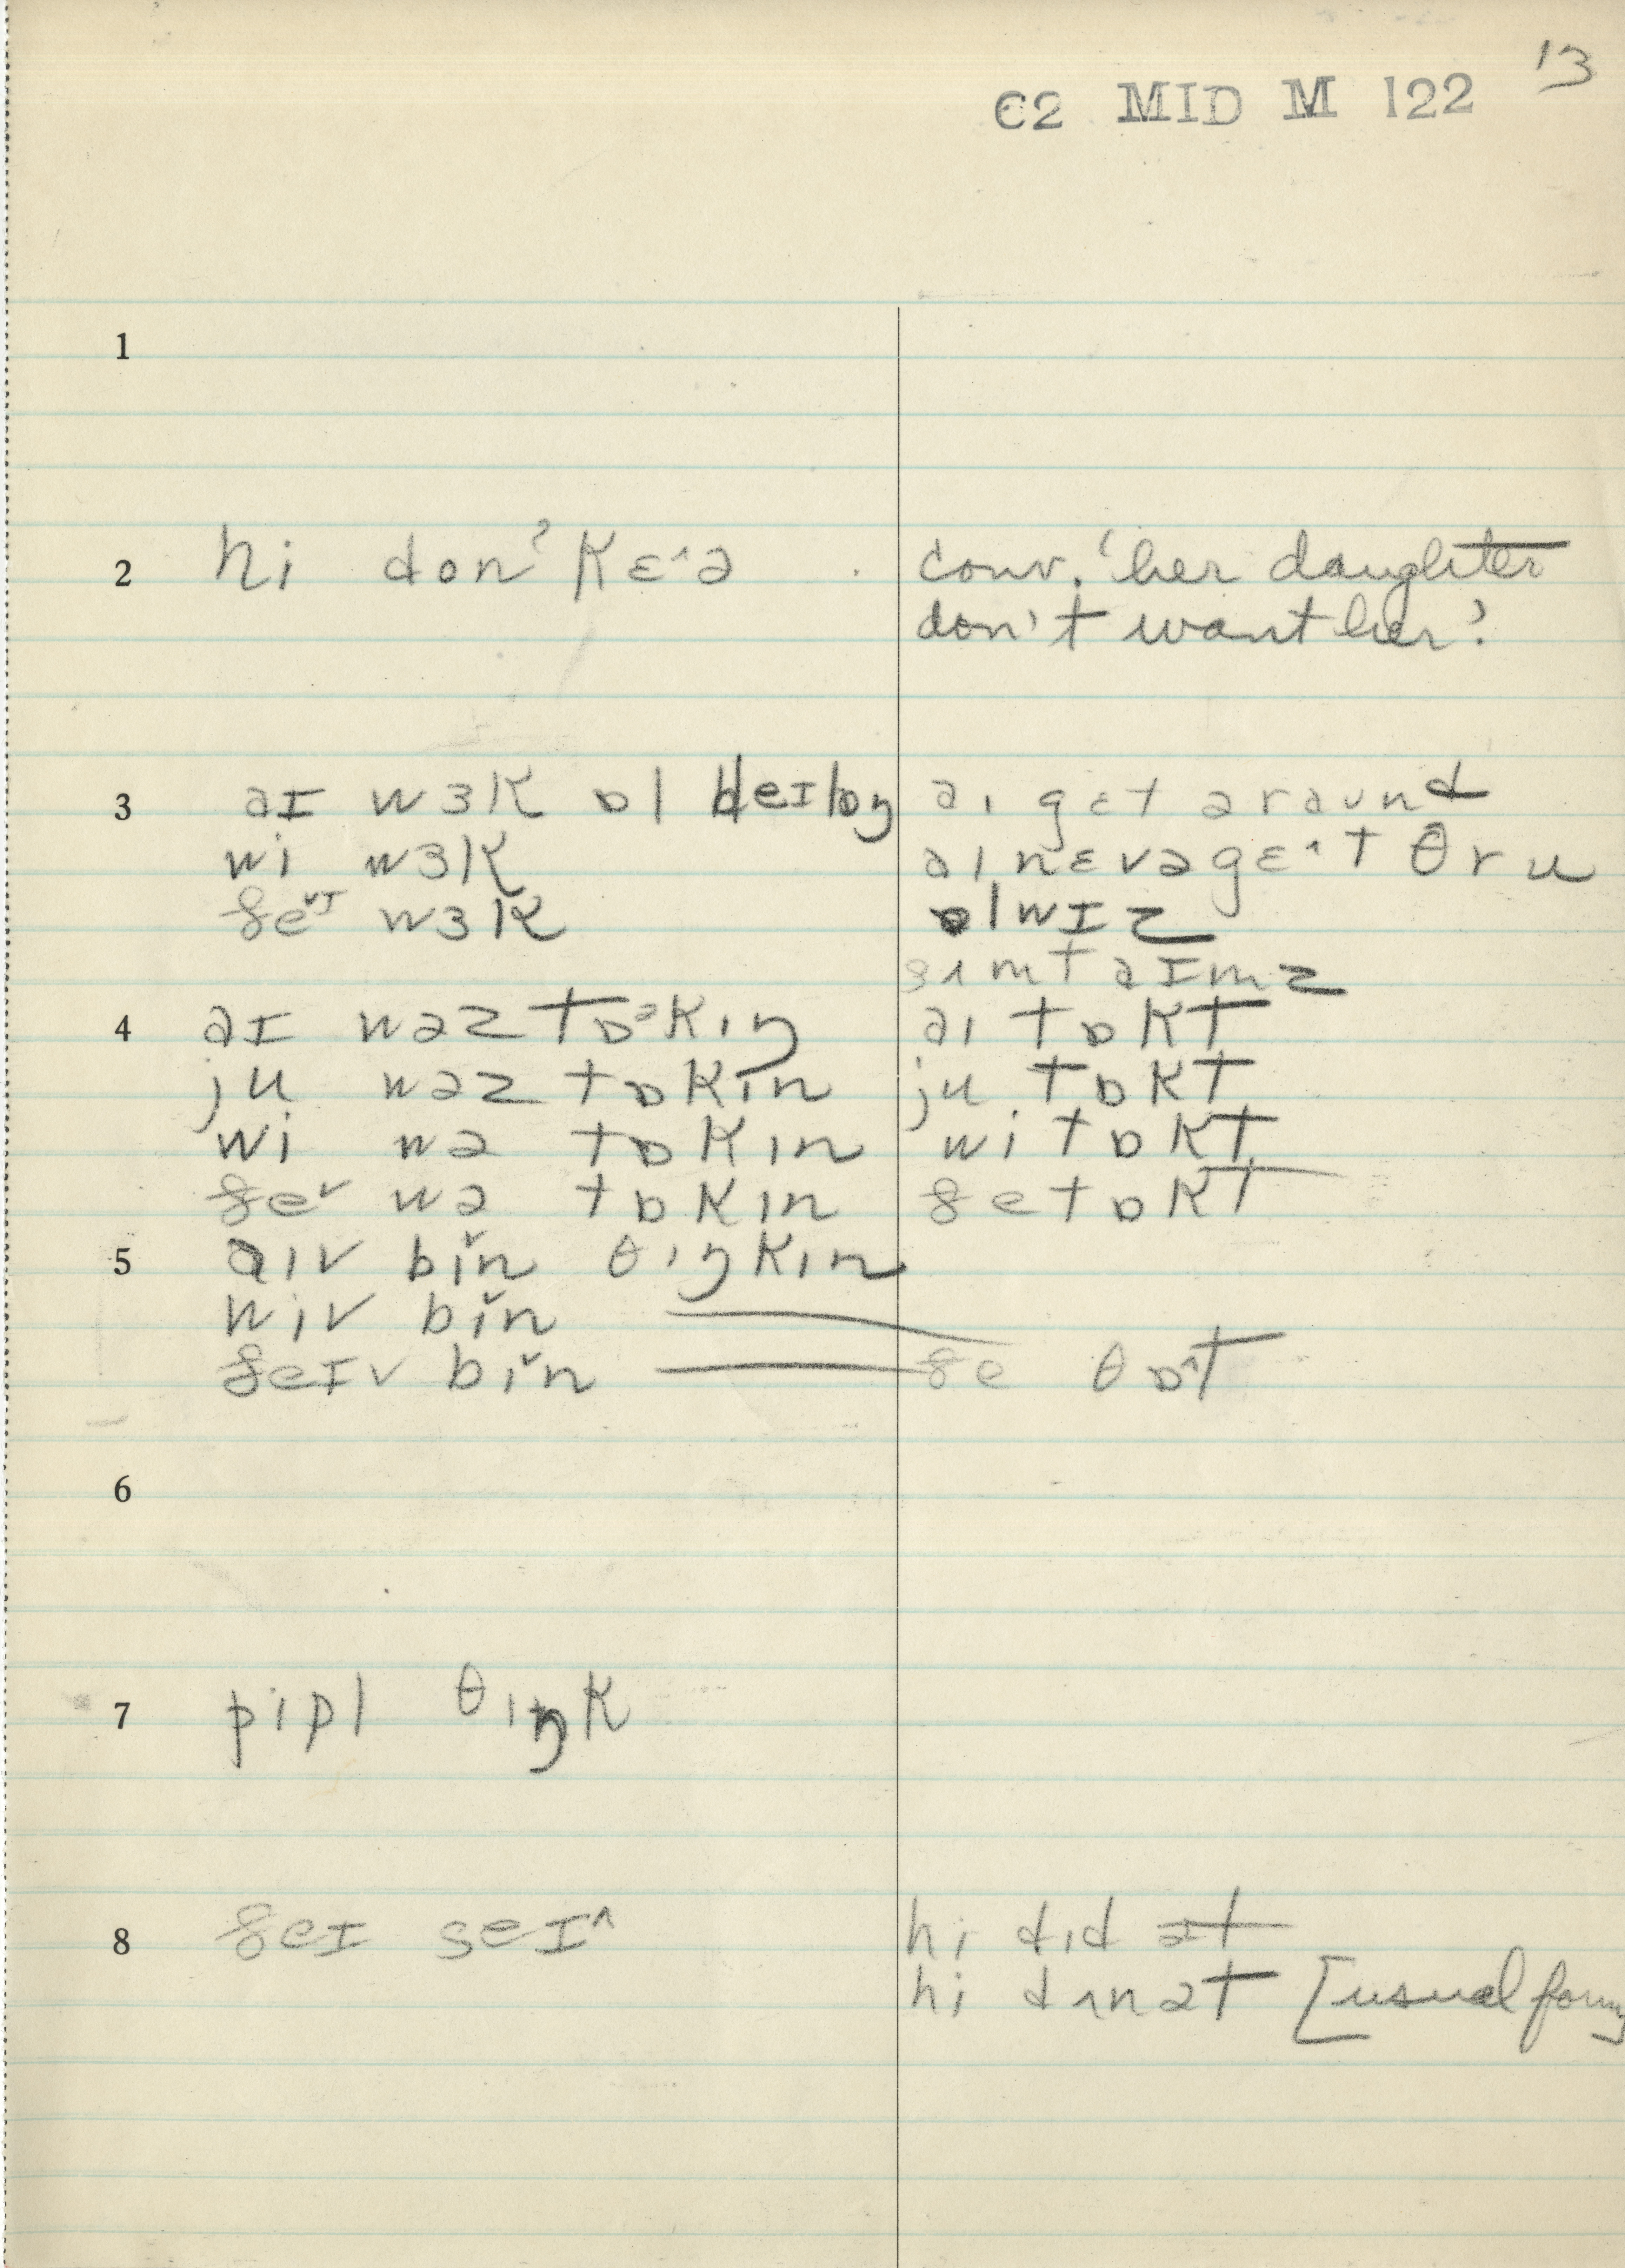 13
C2 MID M 122
1
2 hi donˀ kɛ^ə conv. 'her daughter
don't want her'
3 aɪ wɜk ɒl deɪlɒŋ aɪ gɛt əraʊnd
wi wɜk aɪ nɛvə gɛ^t θru
ðe˅ɪ wɜk ɒlwɪz
sɪmtaɪmz
4 aɪ wəz tɒᵊkɪŋ aɪ tɒkt
ju wəz tɒkɪn ju tɒkt
wi wə tɒkɪn wi tɒkt
ðe˅ wə tɒkɪn ðe tɒkt
5 aɪv bi˅n θɪŋkɪn
wiv bi˅n ——
ðeɪv bi˅n —— ðe θɒ^t
6
7 pipl θɪŋk
8 ðeɪ seɪ^ hi dɪd ət
hi dɪnət [usual form]